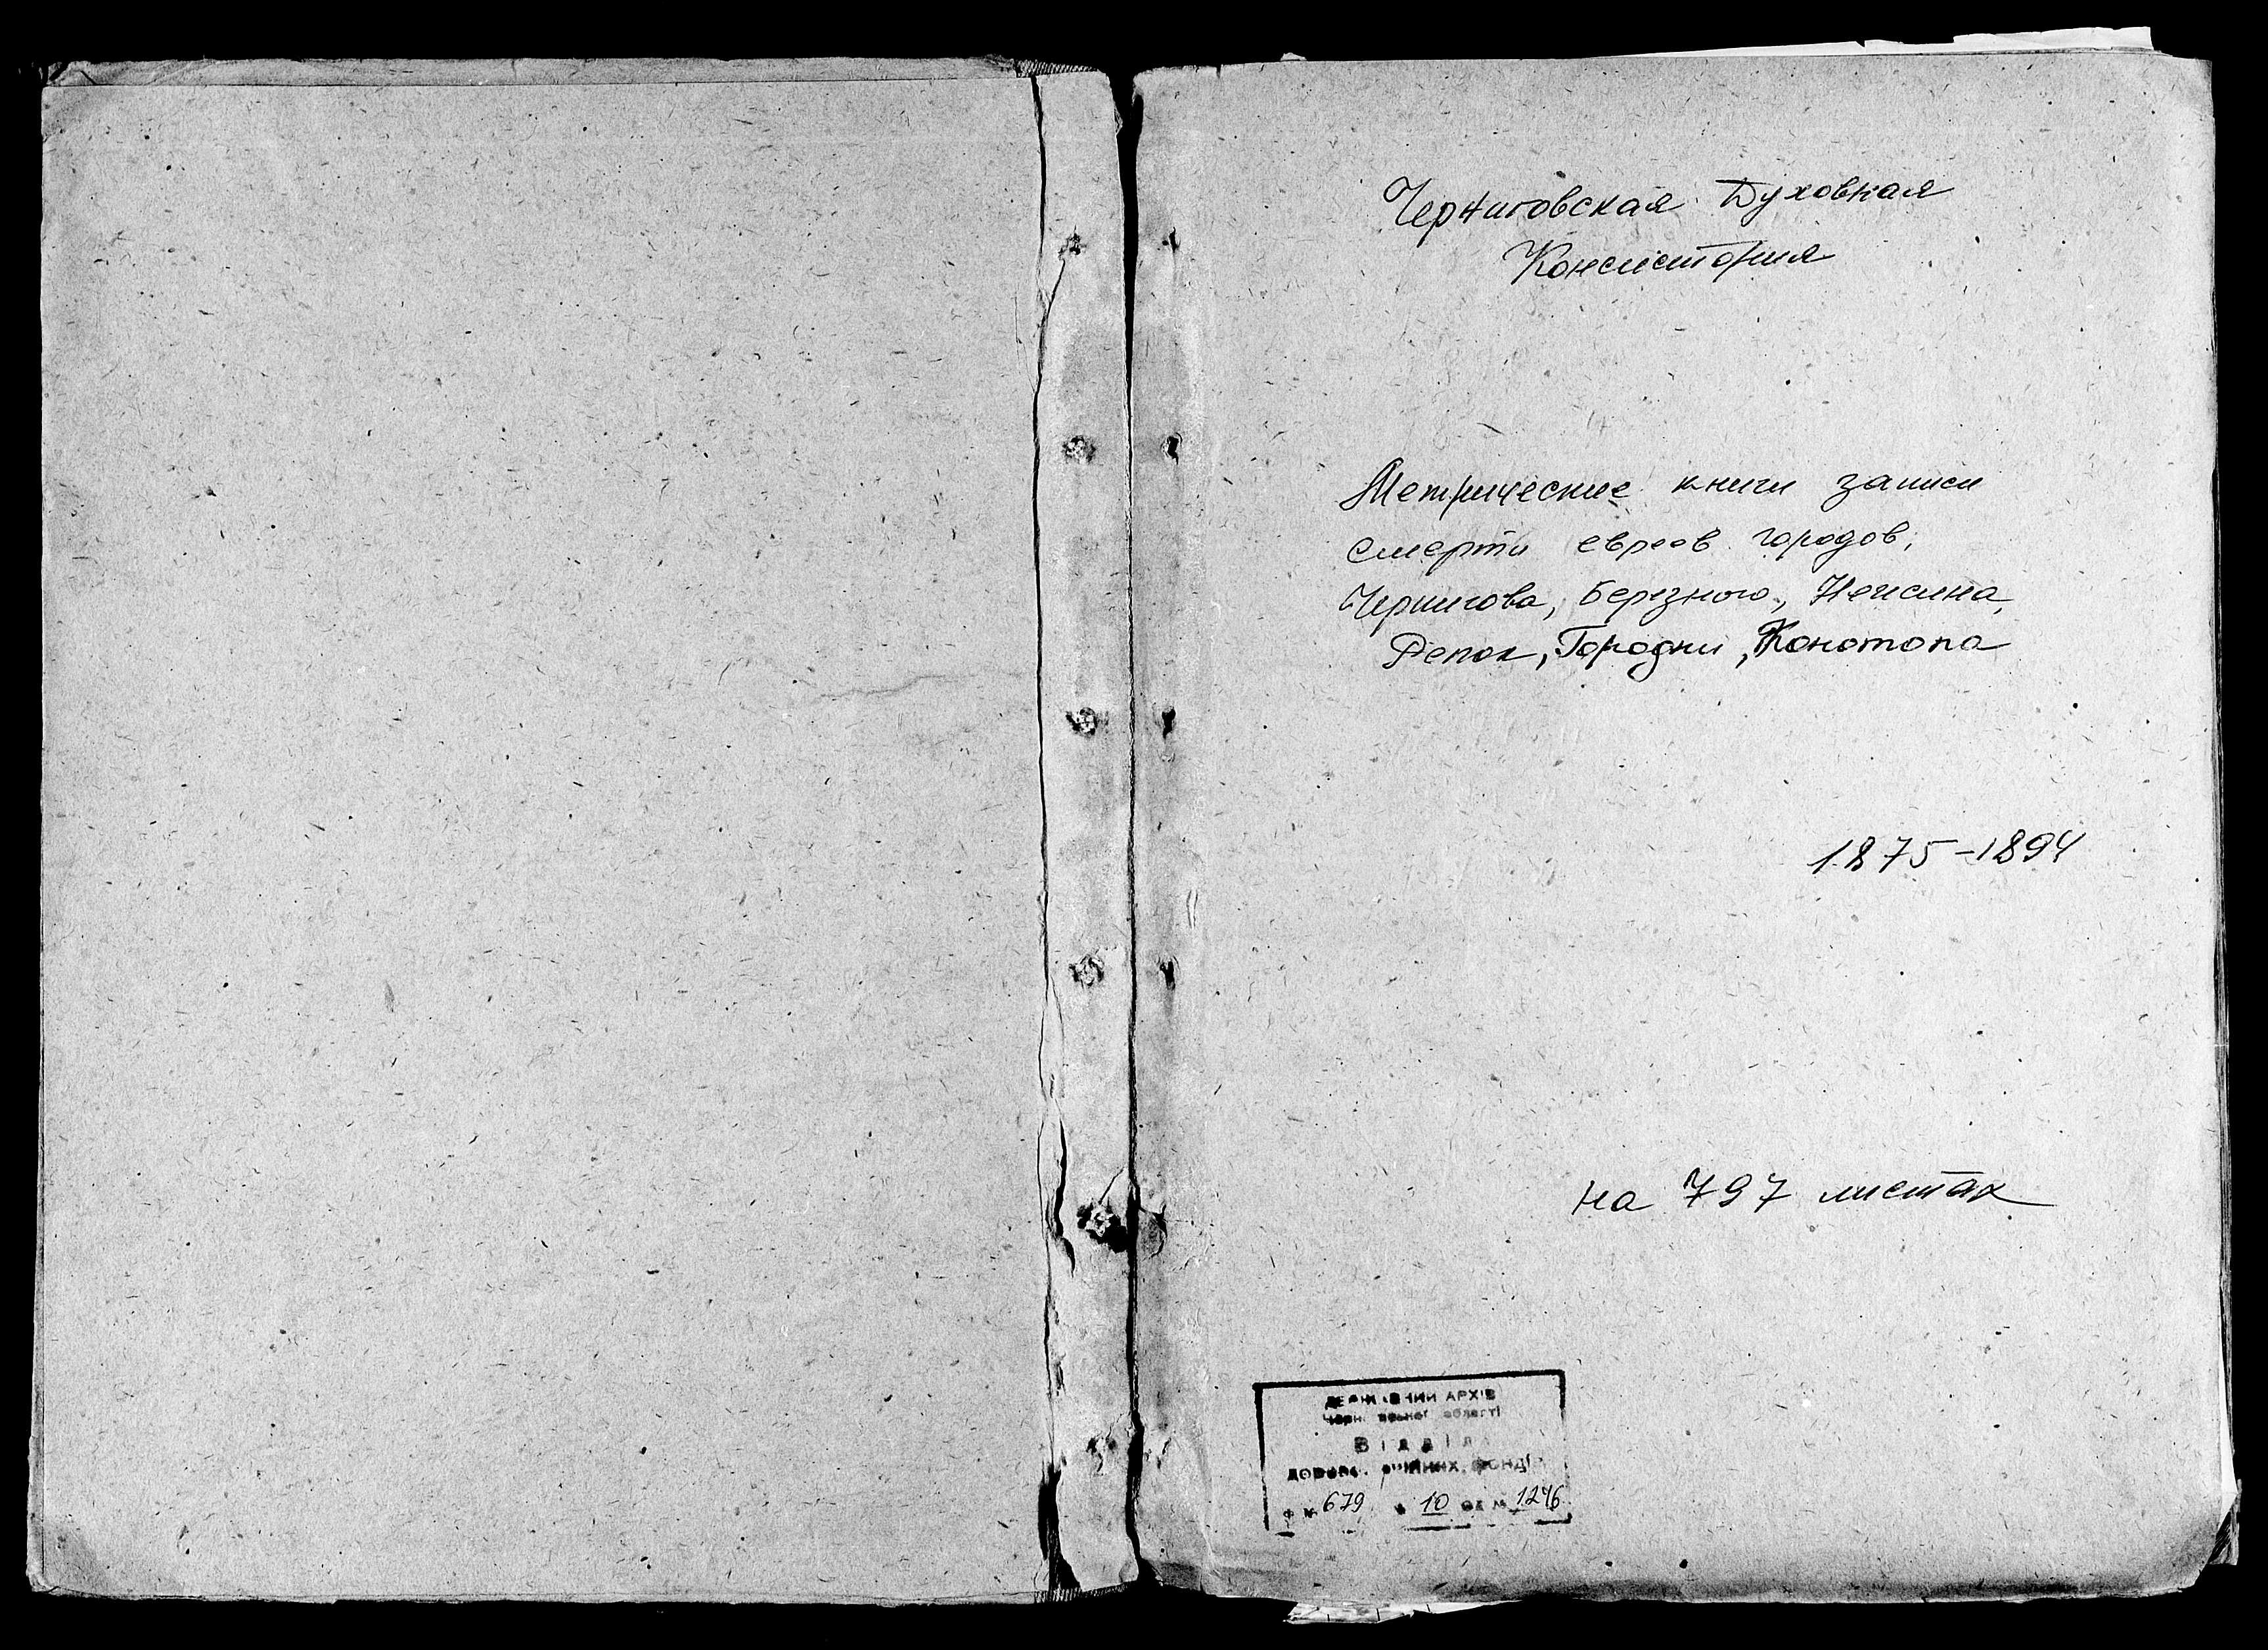 Черниговская Духовная
Консистория
Метрические книги записи
смерти евреев городов,
Чернигова, Березного, Нежина,
Репок, Городни, Конотопа
1875-1894
на 797 листах
ДЕРЖАВНИЙ АРХІВ
Чернігівської області
Відділ
ФОНДІВ
Ф № 679 10 од. № 1246